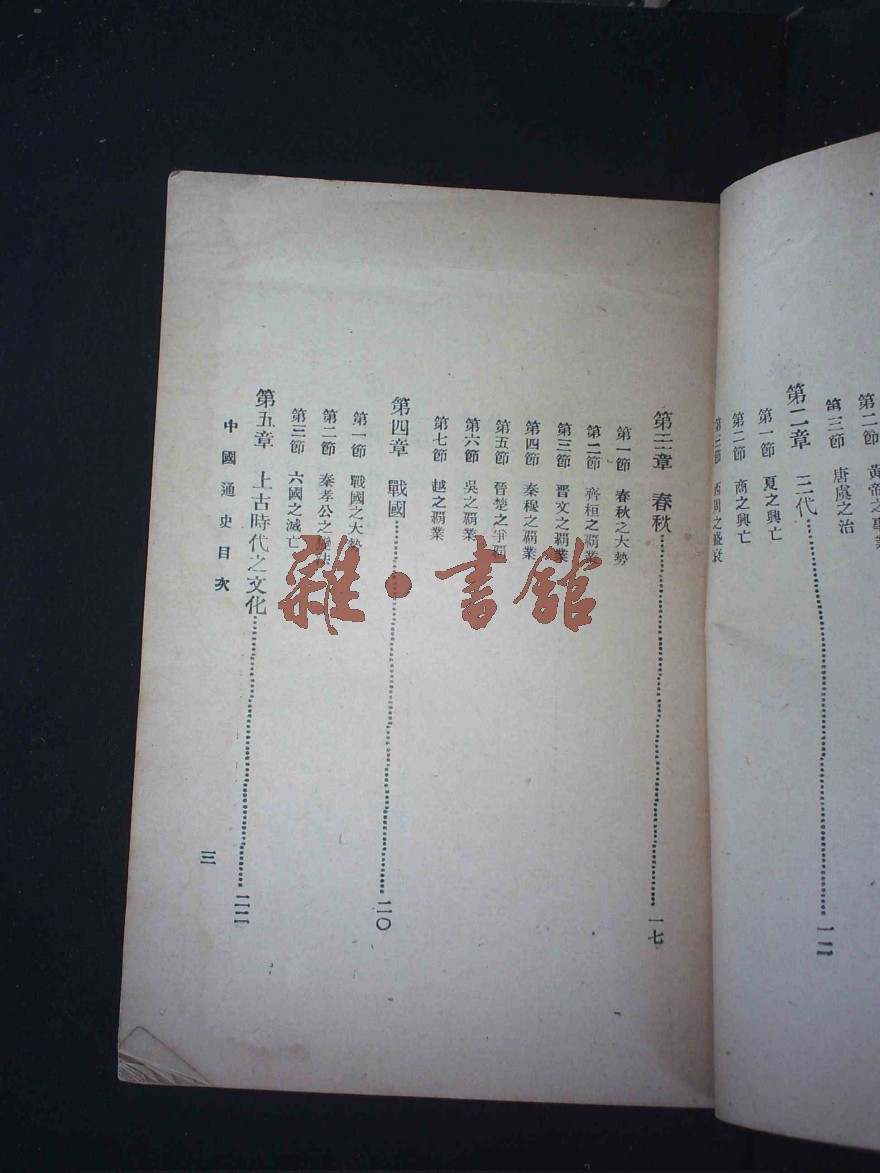 第二節 黃帝之事業
第三節 唐虞之治
第二章 三代……一二
第一節 夏之興亡
第二節 商之興亡
第三節 西周之盛衰
第三章 春秋……一七
第一節 春秋之大勢
第二節 齊桓之霸業
第三節 晋文之霸業
第四節 秦穆之霸業
第五節 晉楚之爭霸
第六節 吳之霸業
第七節 越之霸業
第四章 戰國……二〇
第一節 戰國之大勢
第二節 秦孝公之變法
第三節 六國之滅亡
第五章 上古時代之文化……二二
中國通史目次
三
雜·書館